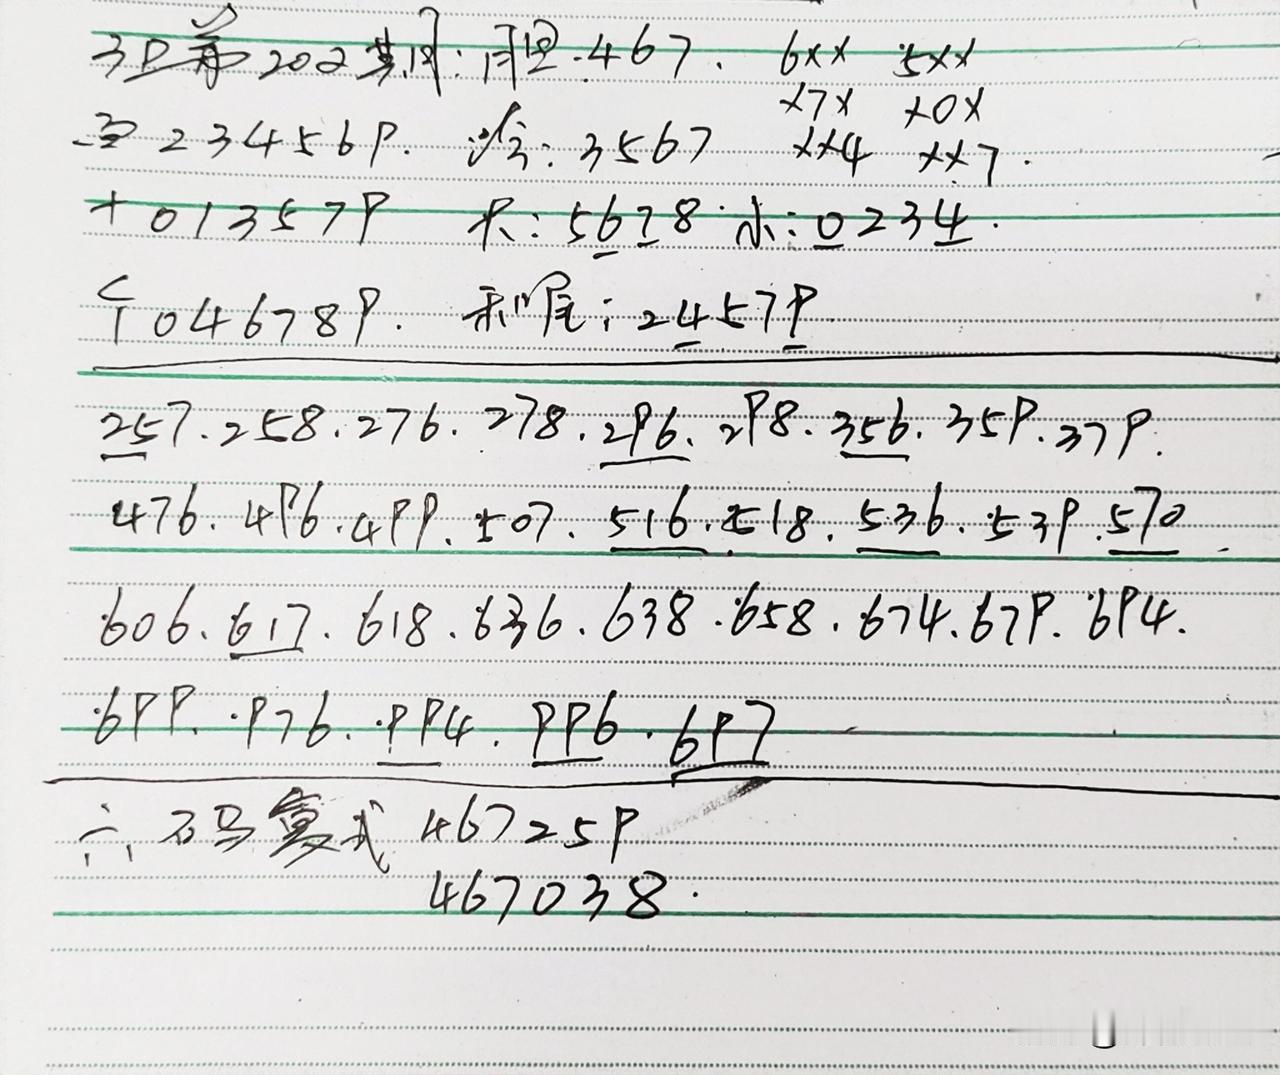 3D第202期:胆:467. 6×× 5××
×7× ×0×
百234569. 3567 ××4 ××7.
十013579 大:5678 小:0234.
个046789. 和尾:24579
257.258.276.278.296.298.356.359.379.
476.496.499.507.516.518.536.539.570.
606.617.618.636.638.658.674.679.694.
699.976.994.996.697
六码复式 467259
467038.